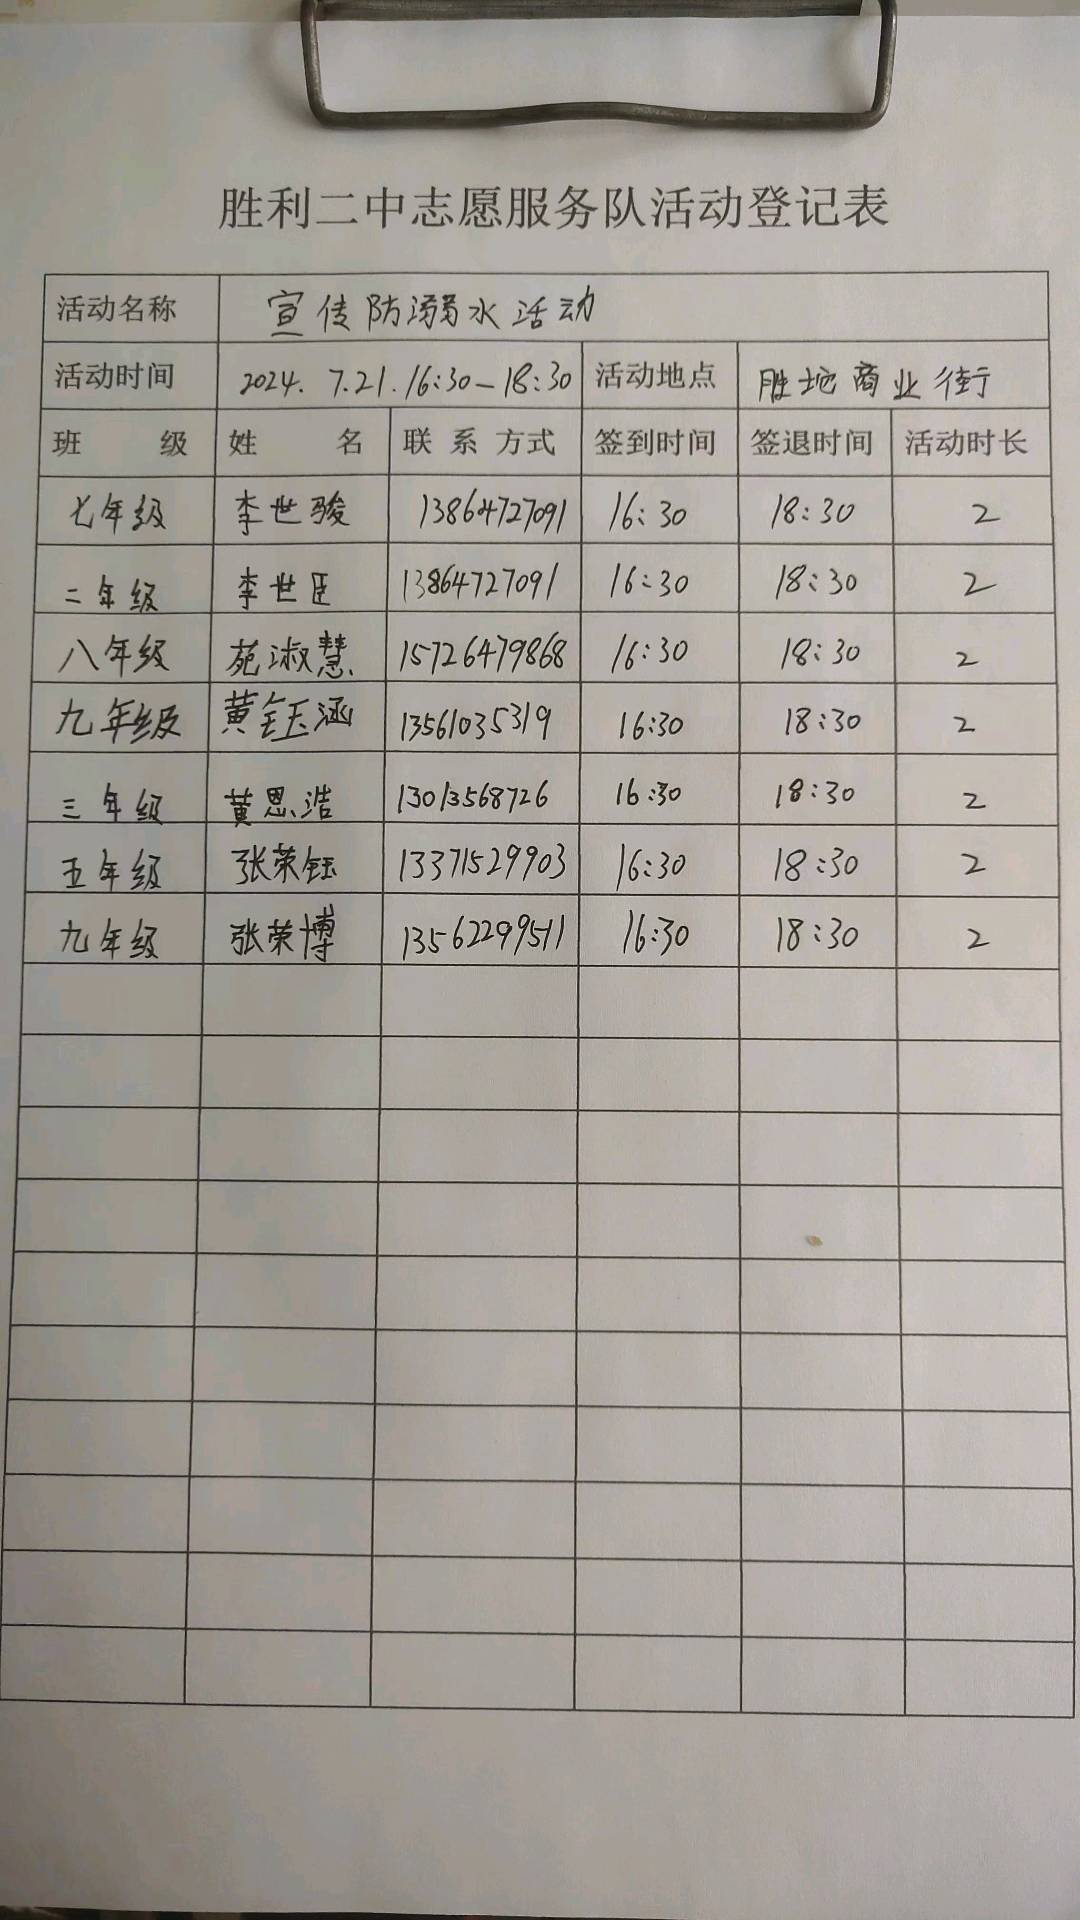 胜利二中志愿服务队活动登记表
活动名称 宣传防溺水活动
活动时间 2024.7.21.16:30-18:30 活动地点 胜地商业街
班 级 姓 名 联系方式 签到时间 签退时间 活动时长
七年级 李世骏 13864727091 16:30 18:30 2
二年级 李世臣 13864727091 16:30 18:30 2
八年级 苑淑慧 15726479868 16:30 18:30 2
九年级 黄钰涵 13561035319 16:30 18:30 2
三年级 黄恩浩 13013568726 16:30 18:30 2
五年级 张荣钰 13371529903 16:30 18:30 2
九年级 张荣博 13562299511 16:30 18:30 2